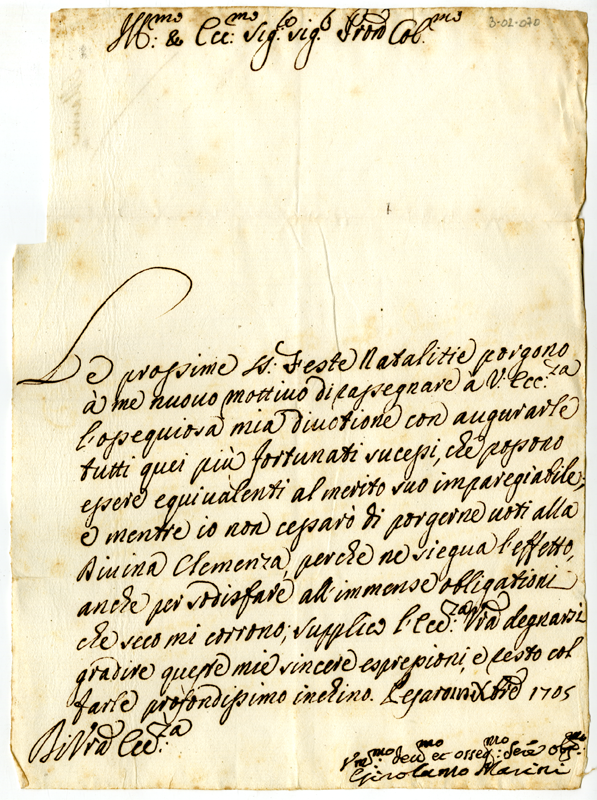 Ill:mo & Ecc:mo Sig:re Sig:re Pron Col:mo
3-02-070
Le prossime SS: Feste Natalitie porgono
à me nuouo mottiuo di rassegnare à V: Ecc:za
l'ossequiosa mia diuotione con augurarle
tutti quei più fortunati sucessi, che possono
essere equiualenti al merito suo impareggiabile;
e mentre io non cessarò di porgerne uoti alla
Diuina Clemenza, perche ne siegua l'effetto,
anche per sodisfare all'immense obligationi
che seco mi corrono; supplico l'Ecc:za Vra degnarsi
gradire queste mie sincere espressioni, e resto col
farle profondissimo inchino. Pesaro Xbre 1705
Di Vra Ecc:za
deuo:mo et osseq:mo
Girolamo Marini